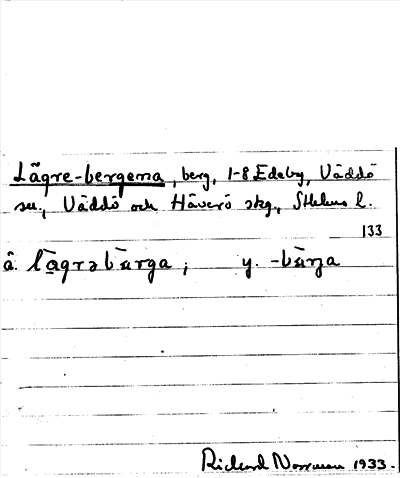 Lågre-bergena, berg, 1-8 Edeby, Väddö
sn., Väddö och Häverö skg., Sthlms l.
133
å. lågrəbærga; y. -bærja
Richard Norrman 1933.